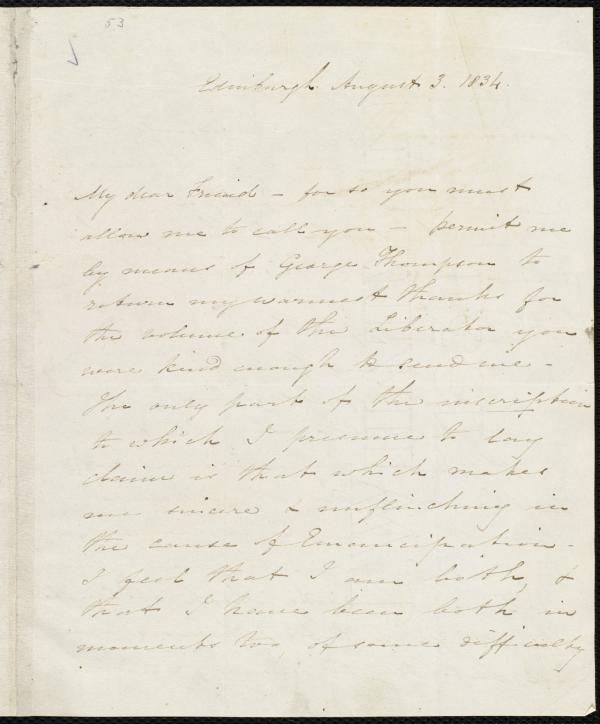 53
Edinburgh August 3. 1834.
My dear Friend - for so you must
allow me to call you - permit me
by means of George Thompson to
return my warmest thanks for
the volume of the Liberator you
were kind enough to send me -
The only part of the inscription
to which I presume to lay
claim is that which makes
me sincere & unflinching in
the cause of Emancipation -
I feel that I am both, &
that I have been both in
moments too, of some difficulty